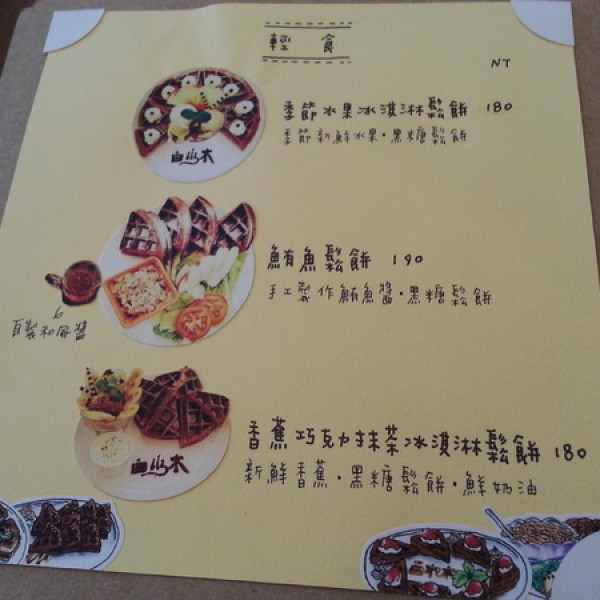 輕食
NT
季節水果冰淇淋鬆餅 180
季節新鮮水果・黑糖鬆餅
鮪魚鬆餅 190
手工製作鮪魚醬・黑糖鬆餅
自製和風醬
香蕉巧克力抹茶冰淇淋鬆餅 180
新鮮香蕉・黑糖鬆餅・鮮奶油